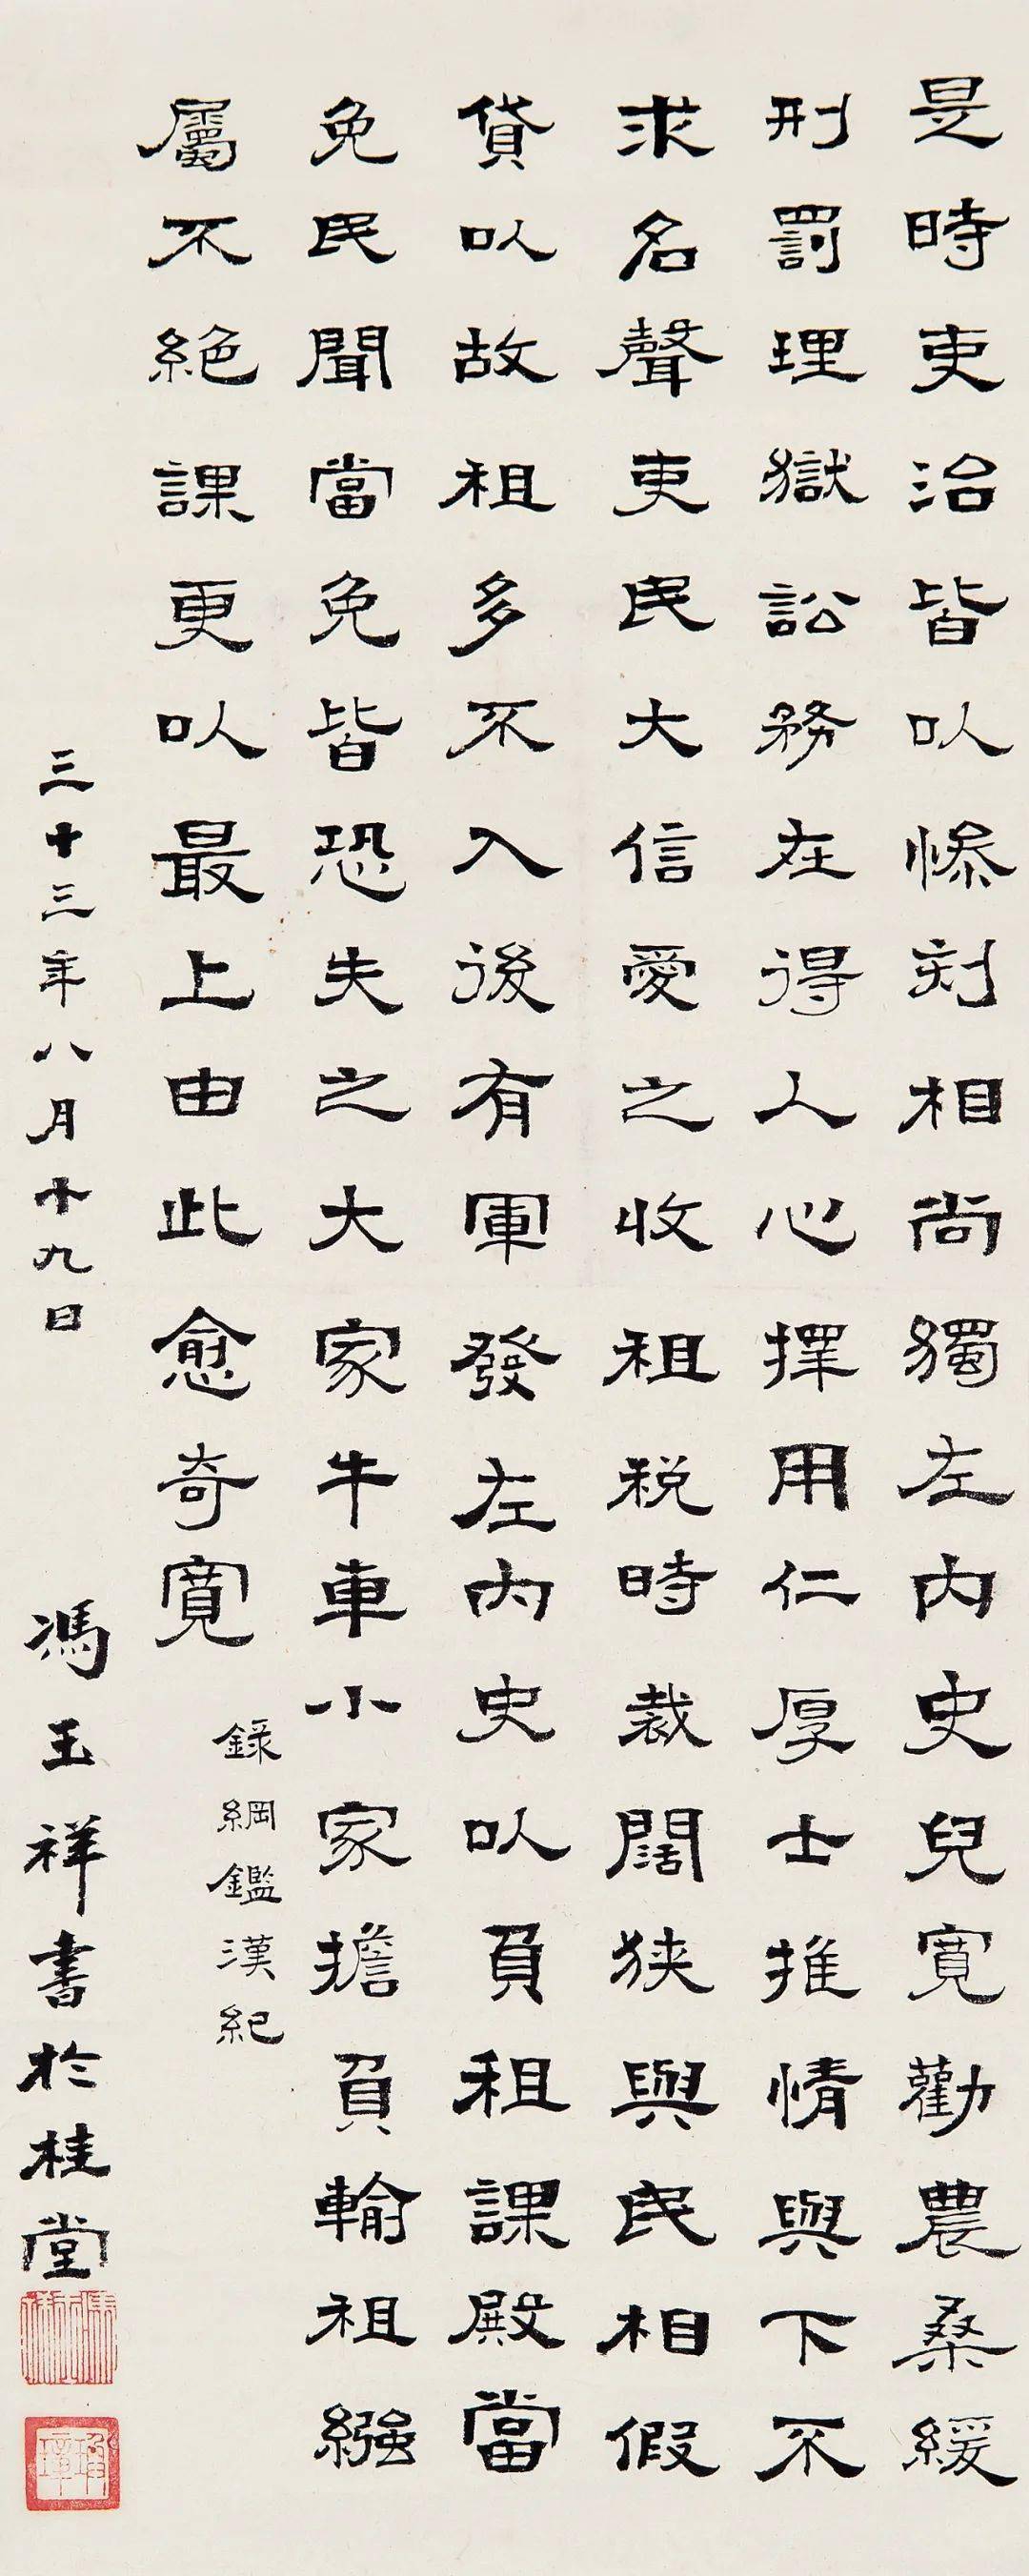 是時吏治皆以慘刻相尚獨左內史兒寬勸農桑緩
刑罰理獄訟務在得人心擇用仁厚士推情與下不
求名聲吏民大信愛之收租税時裁闊狹與民相假
貸以故租多不入後有軍發左內史以負租課殿當
免民聞當免皆恐失之大家牛車小家擔負輸租繈
屬不絕課更以最上由此愈奇寬
錄綱鑑漢紀
三十三年八月十九日
馮玉祥書於桂堂